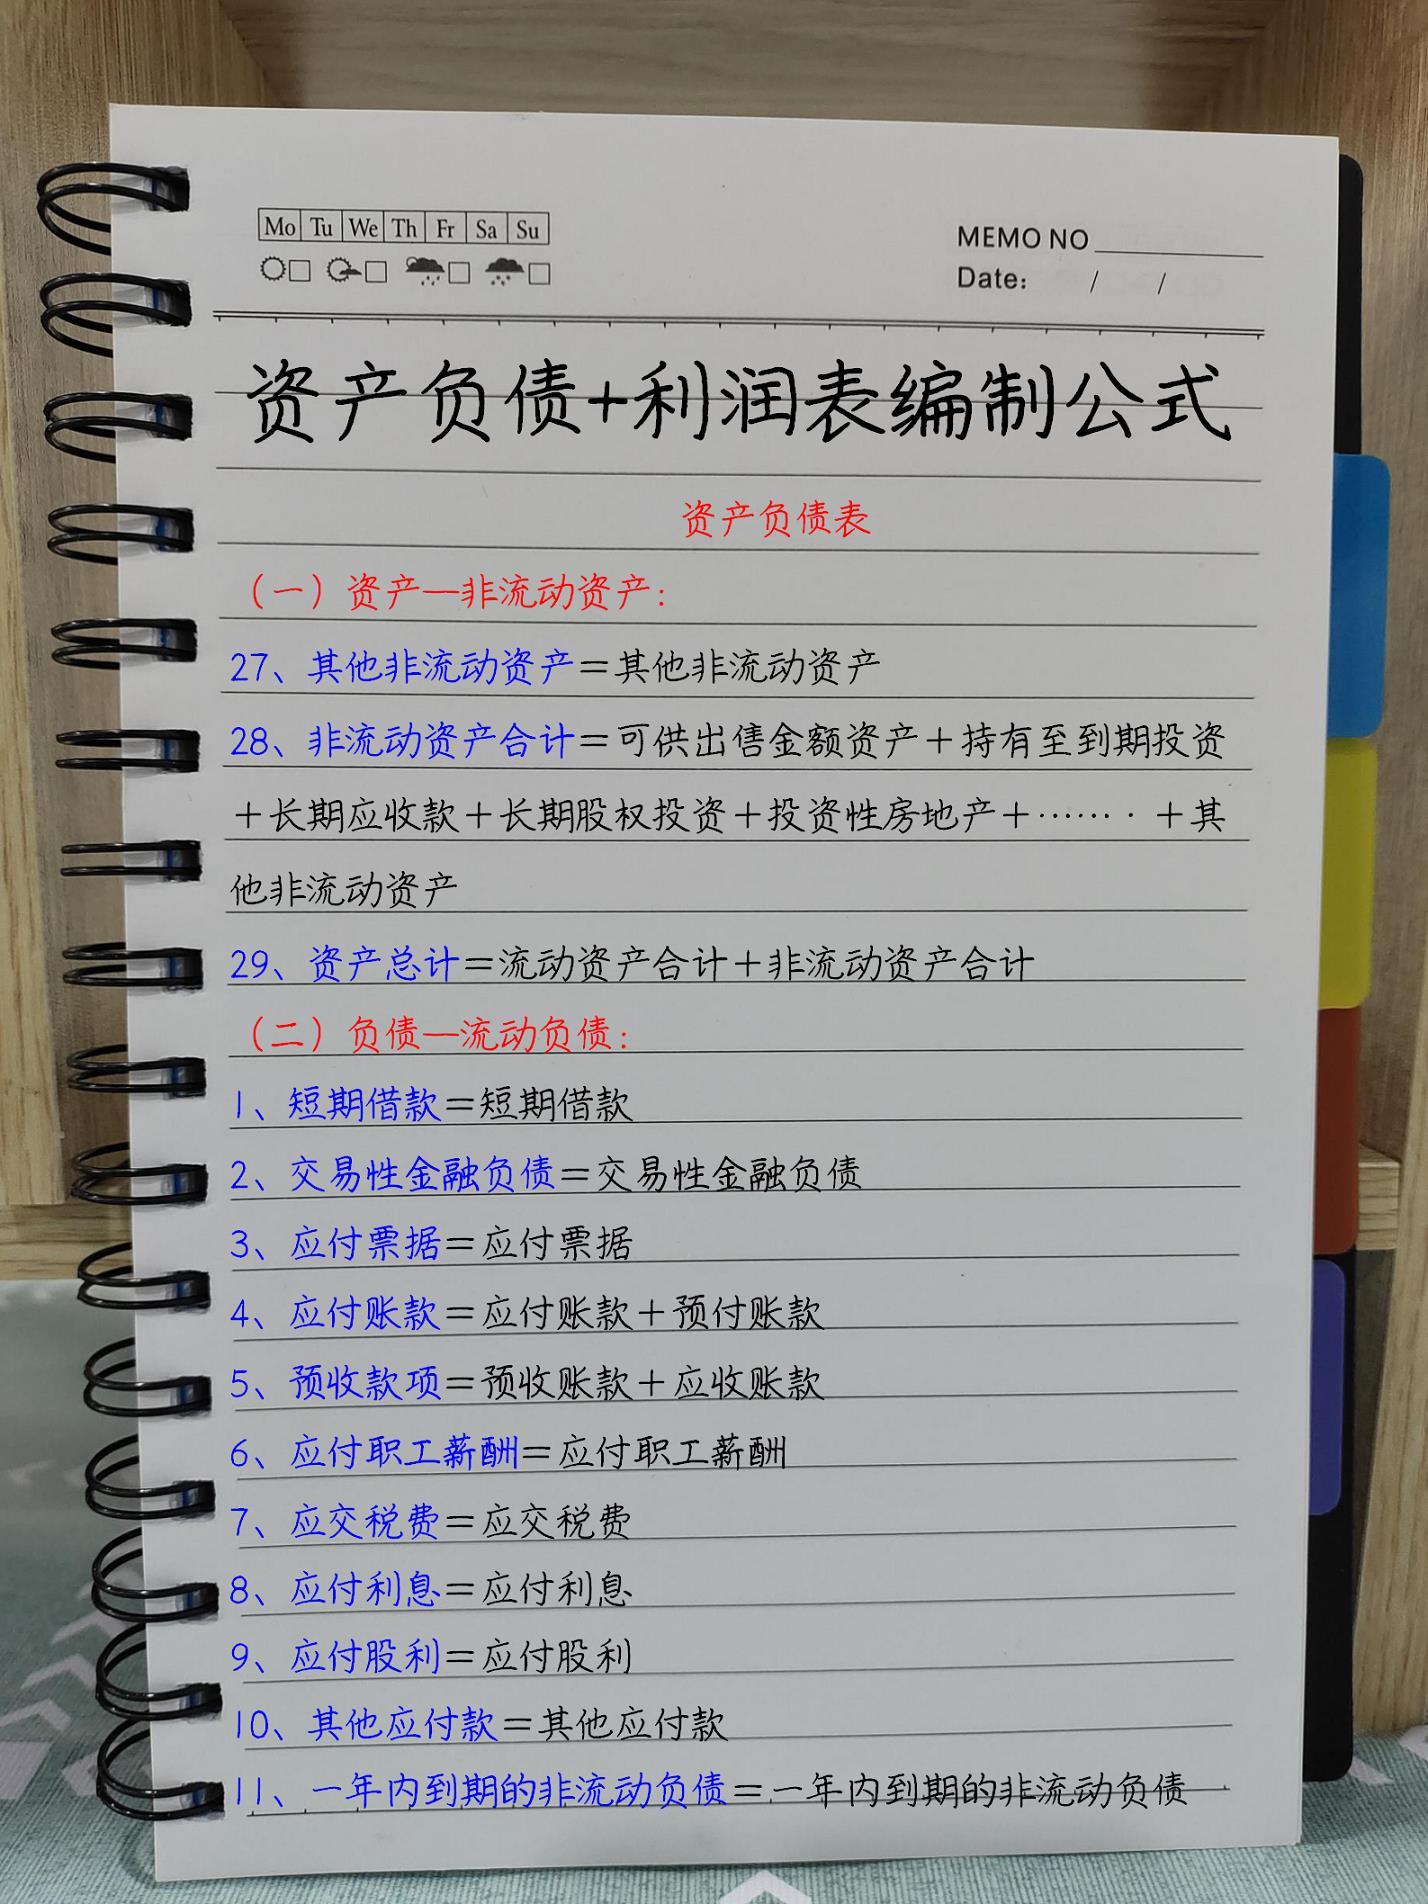 Mo Tu We Th Fr Sa Su
MEMO NO
Date: / /
资产负债+利润表编制公式
资产负债表
（一）资产—非流动资产：
27、其他非流动资产＝其他非流动资产
28、非流动资产合计＝可供出售金额资产＋持有至到期投资
＋长期应收款＋长期股权投资＋投资性房地产＋……·＋其
他非流动资产
29、资产总计＝流动资产合计＋非流动资产合计
（二）负债—流动负债：
1、短期借款＝短期借款
2、交易性金融负债＝交易性金融负债
3、应付票据＝应付票据
4、应付账款＝应付账款＋预付账款
5、预收款项＝预收账款＋应收账款
6、应付职工薪酬＝应付职工薪酬
7、应交税费＝应交税费
8、应付利息＝应付利息
9、应付股利＝应付股利
10、其他应付款＝其他应付款
11、一年内到期的非流动负债＝一年内到期的非流动负债